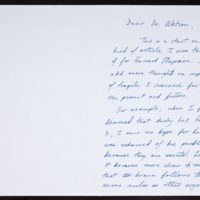 Dear Dr. Watson,
This is a start on
kind of article I was
of for Harvard Magazine.
add more thoughts on
of Fragile X research for
the present and future.
For example, when I
learned that had
X, I saw no hope for
was ashamed of her
because they are mental
it became more clear
that the brain follows
same rules as other